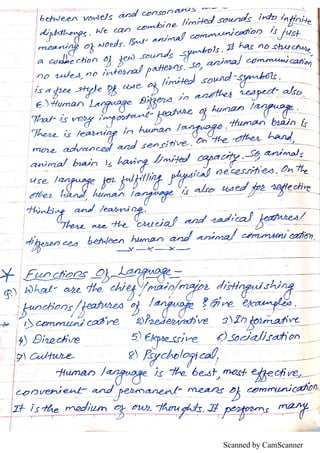 between vowels and consonants
diphthongs. We can combine limited sounds into infinite
meaning of words. But animal communication is just
a connection of few sounds symbols. It has no structure,
no rules, no internal patterns. So, animal communication
is a free style of use of limited sound-symbols.
E) Human Language Differs in another respect also.
That is very important feature of human language.
There is learning in human language. Human brain is
more advanced and sensitive. On the other hand,
animal brain is having limited capacity. So animals
use language for fulfilling physical necessities. On the
other hand, human language is also used for reflective
thinking and learning.
There are the crucial and radical features/
differences between human and animal communication.
—x—x—x—
* Functions Of Language –
Q. What are the chief/main/major distinguishing
functions/features of language & Give examples.
* 1) communicative 2) Preservative 3) Informative
4) Directive 5) Expressive 6) Socialisation
7) Culture 8) Psychological,
Human language is the best, most effective,
convenient and permanent means of communication.
It is the medium of our thoughts. It performs many
Scanned by CamScanner